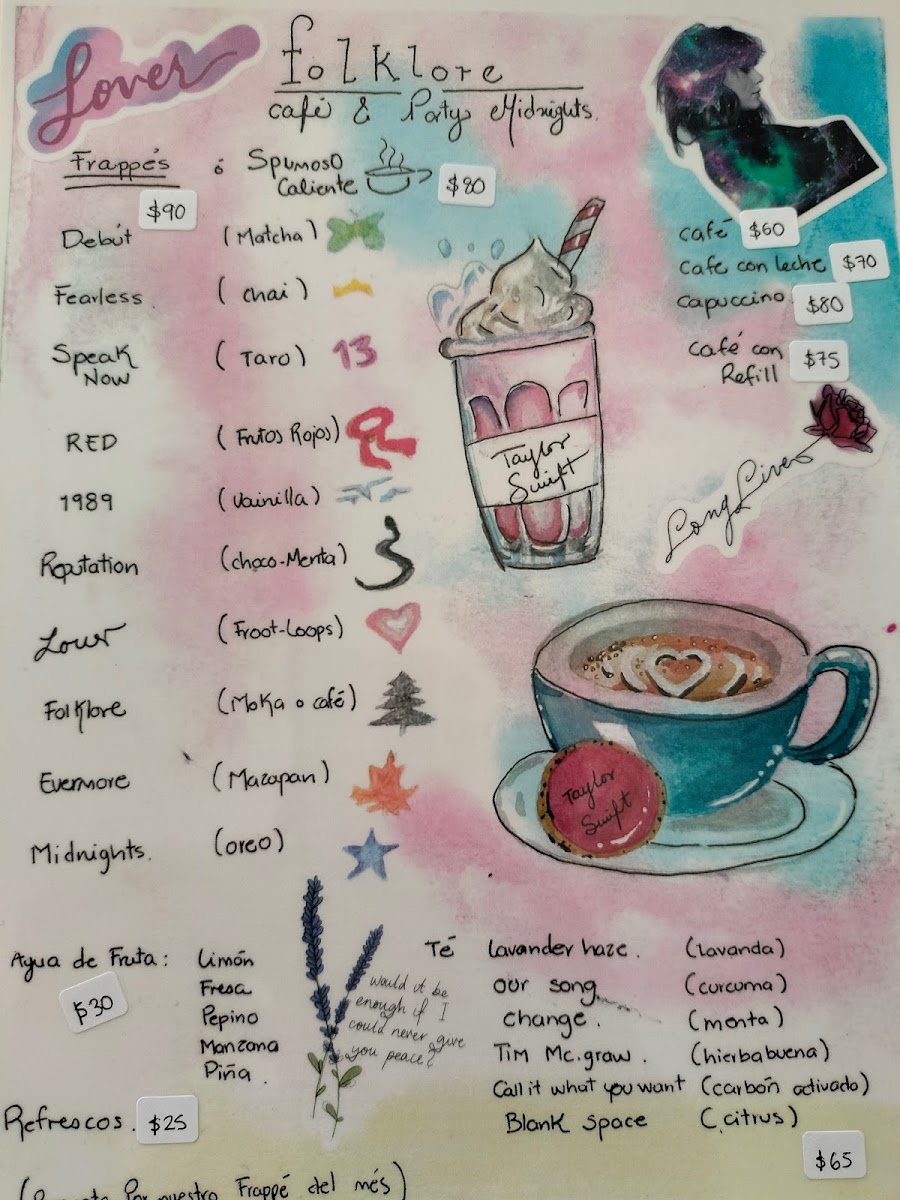 Lover
folklore
café & Party Midnights.
Frappés ó Spumoso Caliente $80
$90
Debút (Matcha)
Fearless. (chai)
Speak Now (Taro) 13
RED (Frutos Rojos)
1989 (Vainilla)
Reputation (choco-Menta)
Lover (Froot-Loops)
Folklore (Moka o café)
Evermore (Mazapan)
Midnights. (oreo)
café $60
cafe con leche $70
capuccino $80
café con Refill $75
Long Live
Taylor
Swift
Taylor
Swift
Agua de Fruta: Limón
$30
Fresa
Pepino
Manzana
Piña.
would it be
enough if I
could never give
you peace?
Té lavander haze. (lavanda)
our song. (curcuma)
change. (menta)
Tim Mc.graw. (hierbabuena)
Call it what you want (carbón activado)
Blank space (citrus)
$65
Refrescos. $25
(Pregunta Por nuestro Frappé del més)